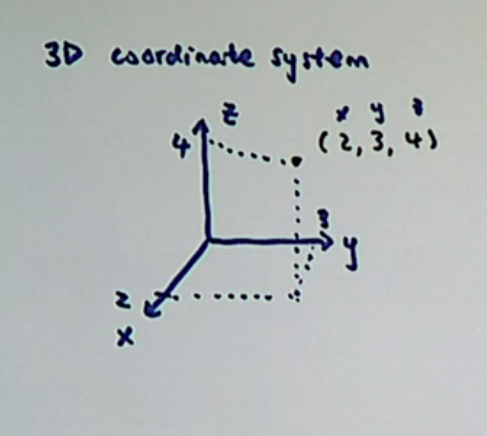 3D coordinate system
z
x y z
4
(2, 3, 4)
3
y
2
x